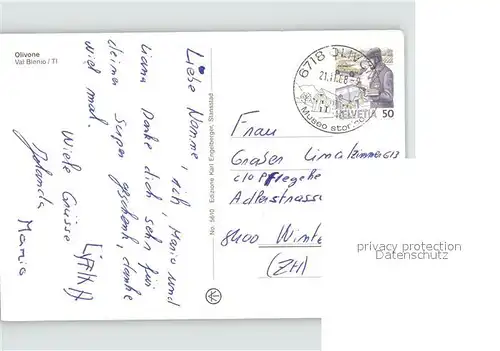 Olivone
Val Blenio / TI
Liebe Nonna, ich, Mario und
Liana Danke dich sehr für
deine Super geschenk, danke
viel mal.
Viele Grüsse
Jolanda
Mario
No. 5610 Edizione Karl Engelberger, Stansstad
6718 OLIVO
21.11.88
Museo stor
HELVETIA 50
Frau
Graber Lina Zimmer 613
c/o Pflegehe
Adlerstrasse
8400 Winte
(ZH)
privacy protection
Datenschutz